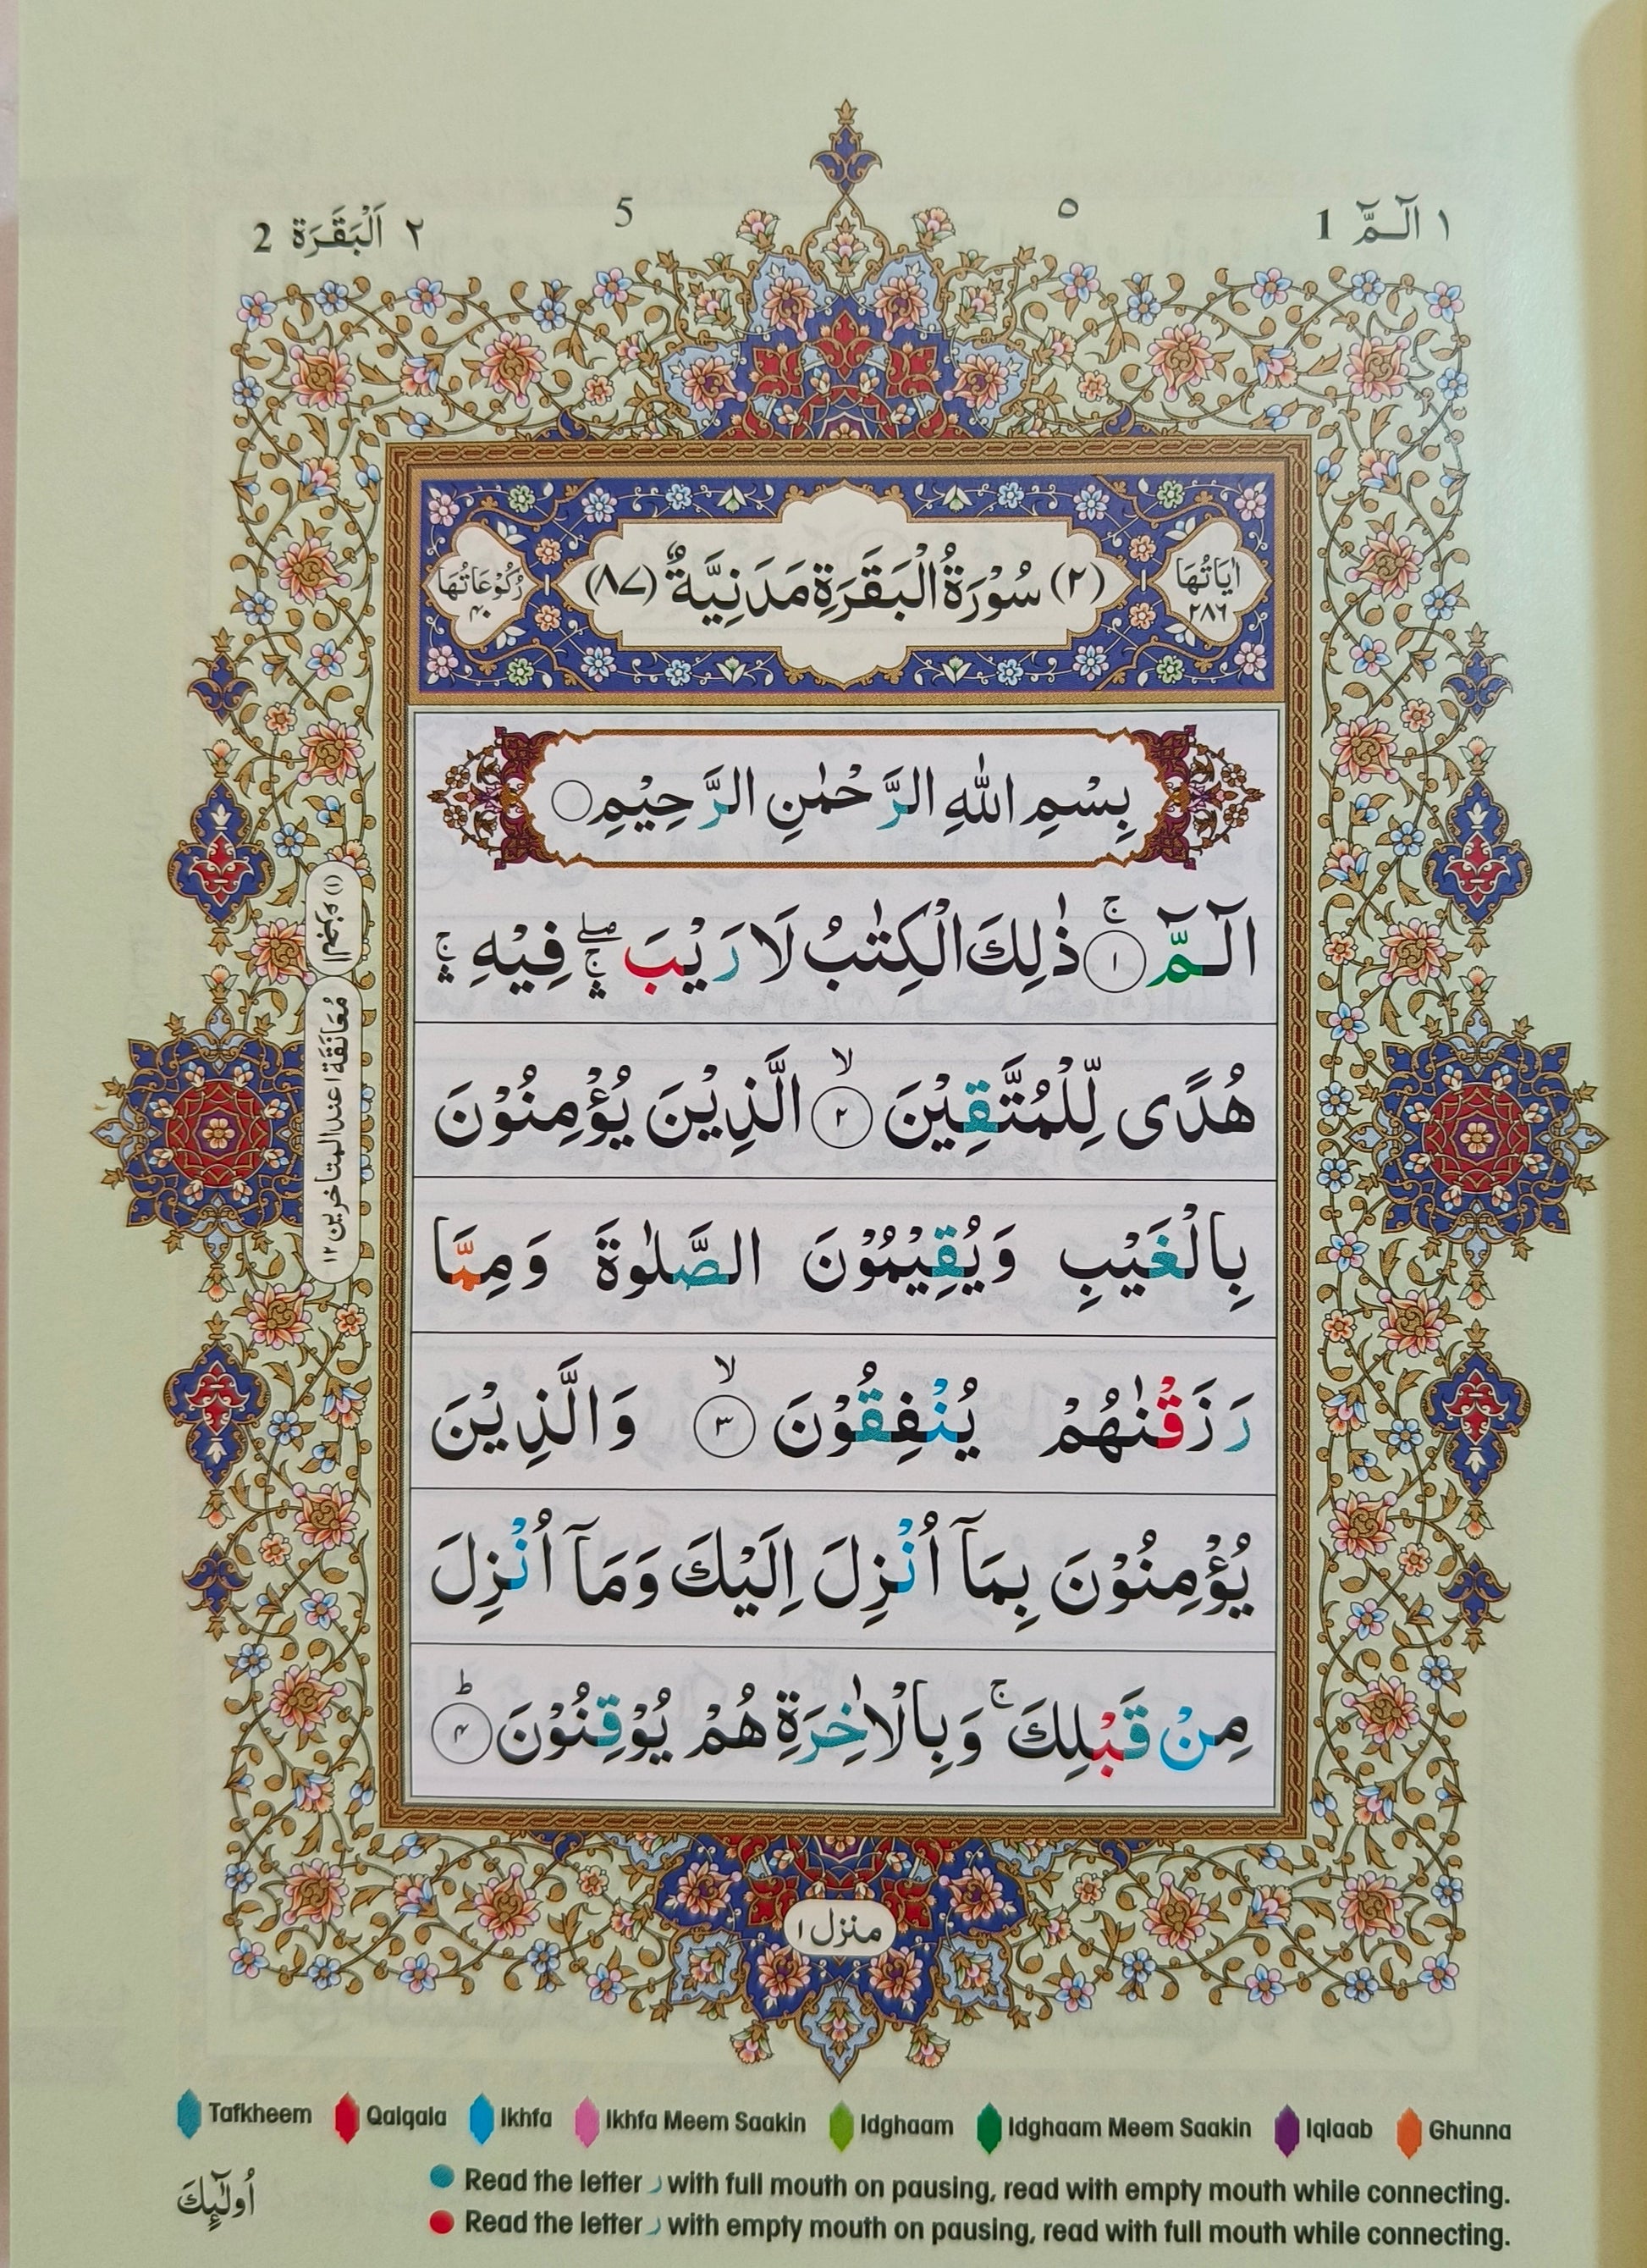 ١ الٓـمّٓ 1
٥
5
٢ اَلْبَقَرَة 2
اٰيَاتُهَا ٢٨٦
(٢) سُوْرَةُ الْبَقَرَةِ مَدَنِيَّةٌ (٨٧)
رُكُوْعَاتُهَا ٤٠
بِسْمِ اللّٰهِ الرَّحْمٰنِ الرَّحِيْمِ
الٓـمّٓ ۚ ١ ذٰلِكَ الْكِتٰبُ لَا رَيْبَ ۛۖۚ فِيْهِ ۛۚ
هُدًى لِّلْمُتَّقِيْنَ ۙ ٢ الَّذِيْنَ يُؤْمِنُوْنَ
بِالْغَيْبِ وَيُقِيْمُوْنَ الصَّلٰوةَ وَمِمَّا
رَزَقْنٰهُمْ يُنْفِقُوْنَ ۙ ٣ وَالَّذِيْنَ
يُؤْمِنُوْنَ بِمَآ اُنْزِلَ اِلَيْكَ وَمَآ اُنْزِلَ
مِنْ قَبْلِكَ ۚ وَبِالْاٰخِرَةِ هُمْ يُوْقِنُوْنَ ؕ ٤
مُعَانَقَة ١ عند المتاخرين ١٢
منزل ١
Tafkheem Qalqala Ikhfa Ikhfa Meem Saakin Idghaam Idghaam Meem Saakin Iqlaab Ghunna
Read the letter ر with full mouth on pausing, read with empty mouth while connecting.
Read the letter ر with empty mouth on pausing, read with full mouth while connecting.
اُولٰٓئِكَ